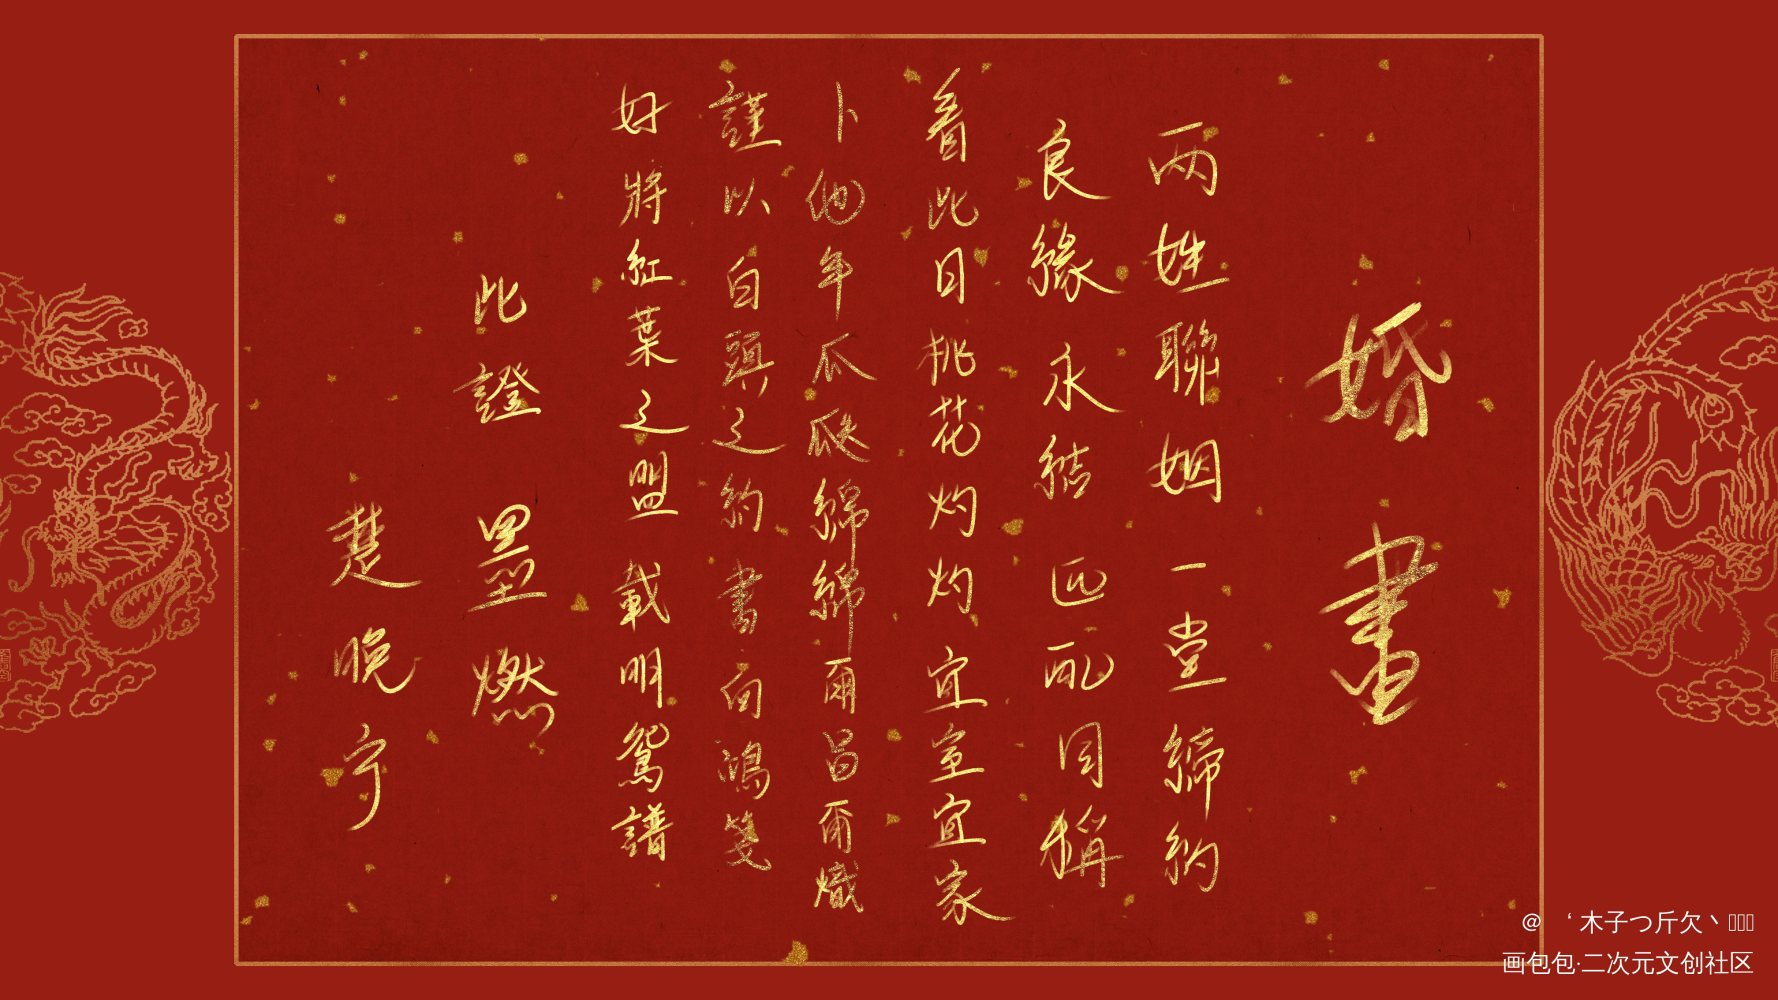 婚書
两姓聯姻 一堂締約
良緣永結 匹配同稱
看此日桃花灼灼 宜室宜家
卜他年瓜瓞綿綿 爾昌爾熾
謹以白頭之約 書向鴻箋
好將紅葉之盟 載明鴛譜
此證 墨燃
楚晚宁
@ ‘ 木子つ斤欠丶
画包包·二次元文创社区